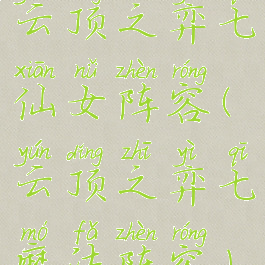 云顶之弈七
xiān nǚ zhèn róng
仙女阵容(
yún dǐng zhī yì qī
云顶之弈七
mó fǎ zhèn róng
魔法阵容)